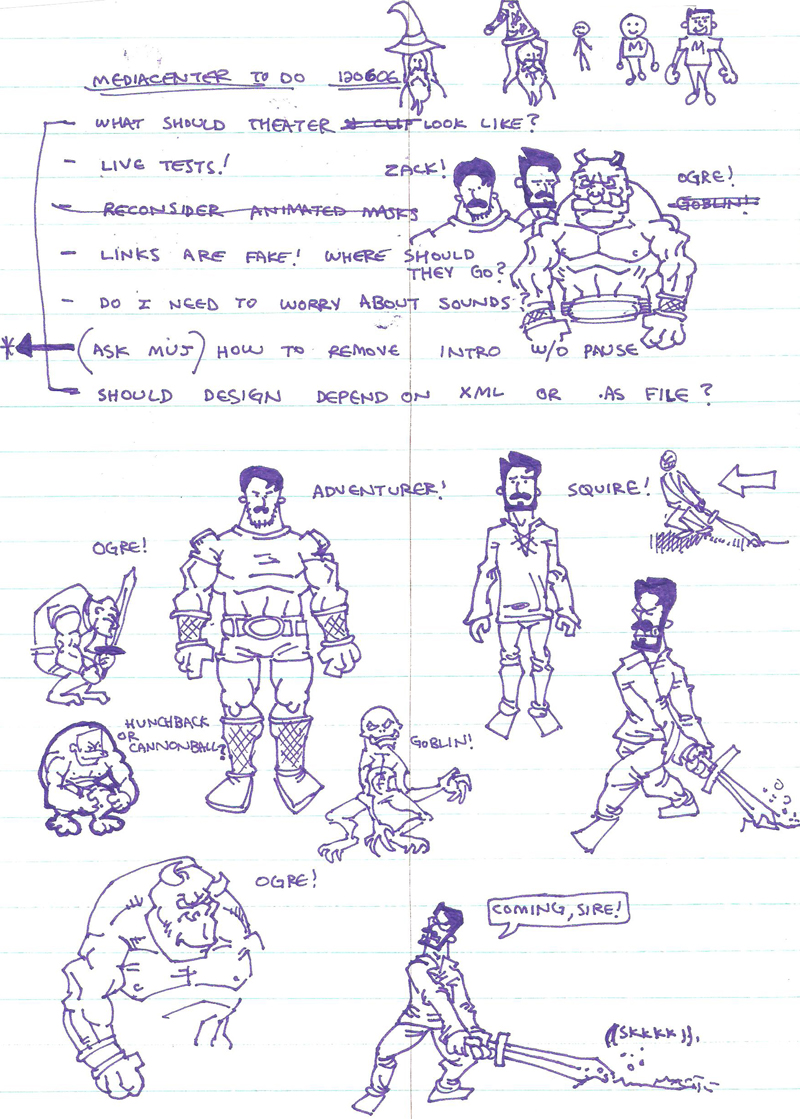 MEDIACENTER TO DO 120606
M M
- WHAT SHOULD THEATER LOOK LIKE?
- LIVE TESTS!
ZACK!
OGRE!
GOBLIN!
- RECONSIDER ANIMATED MASKS
- LINKS ARE FAKE! WHERE SHOULD
THEY GO?
- DO I NEED TO WORRY ABOUT SOUNDS?
* (ASK MUJ) HOW TO REMOVE INTRO W/O PAUSE
SHOULD DESIGN DEPEND ON XML OR .AS FILE?
ADVENTURER!
SQUIRE!
OGRE!
HUNCHBACK
OR
CANNONBALL?
GOBLIN!
OGRE!
COMING, SIRE!
((SKKKK)),